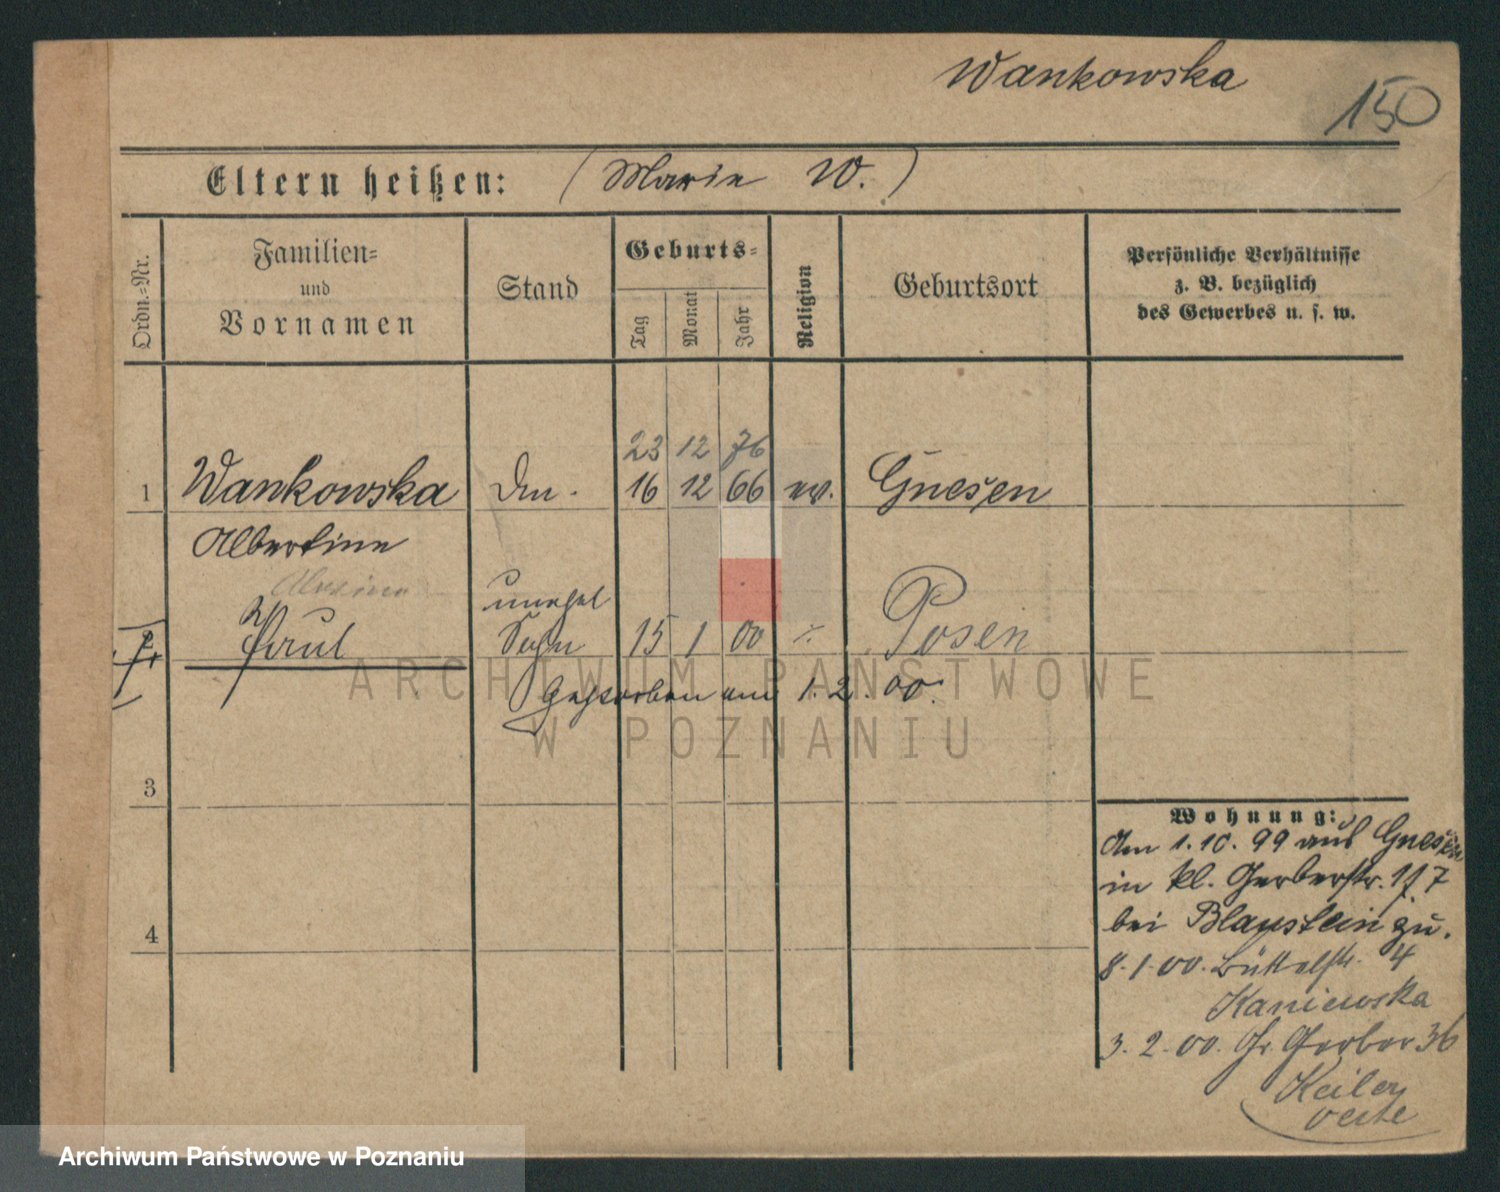 Wankowska
150
Eltern heißen: (Marie W.)
Ordn.=Nr.
Familien=
und
Vornamen
Stand
Geburts=
Tag
Monat
Jahr
Religion
Geburtsort
Persönliche Verhältnisse
z. B. bezüglich
des Gewerbes u. s. w.
23 12 76
1 Wankowska 16 12 66 ev. Gnesen
Albertine
unehel
Paul Sohn 15 1 00 Posen
Gestorben am 1. 2. 00.
3
4
Wohnung:
Am 1. 10. 99 aus Gnesen
in kl. Gerberstr. 7
bei Blaustein zu.
8. 1. 00. Büttelstr. 4
Kaniewska
3. 2. 00. Gr. Gerber 36
ARCHIWUM PAŃSTWOWE
W POZNANIU
Archiwum Państwowe w Poznaniu